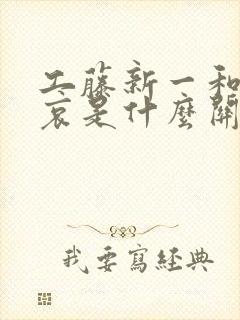 工藤新一和
哀是什麼關
我要寫經典